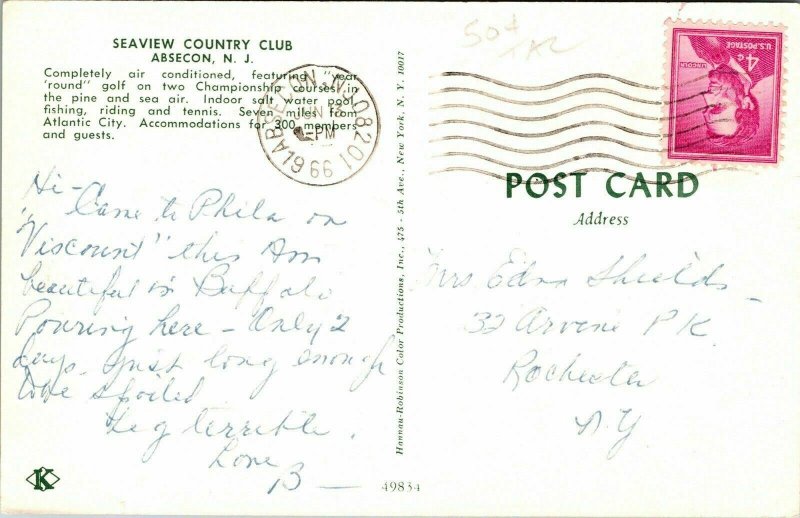 SEAVIEW COUNTRY CLUB
ABSECON, N. J.
Completely air conditioned, featuring "year
'round" golf on two Championship courses in
the pine and sea air. Indoor salt water pool,
fishing, riding and tennis. Seven miles from
Atlantic City. Accommodations for 300 members
and guests.
Hi-
Came to Phila on
"Viscount" this Am
beautiful in Buffalo
Pouring here - Only 2
days just long enough
to be spoiled
Leg terrible.
Love
B -
K
Hannau-Robinson Color Productions, Inc., 475 - 5th Ave., New York, N. Y. 10017
49834
ABSECON, N.J. 08201
JUN
PM
1966
50¢
4¢
U.S. POSTAGE
LINCOLN
POST CARD
Address
Mrs Edna Shields
32 Arvine PK.
Rochester
NY